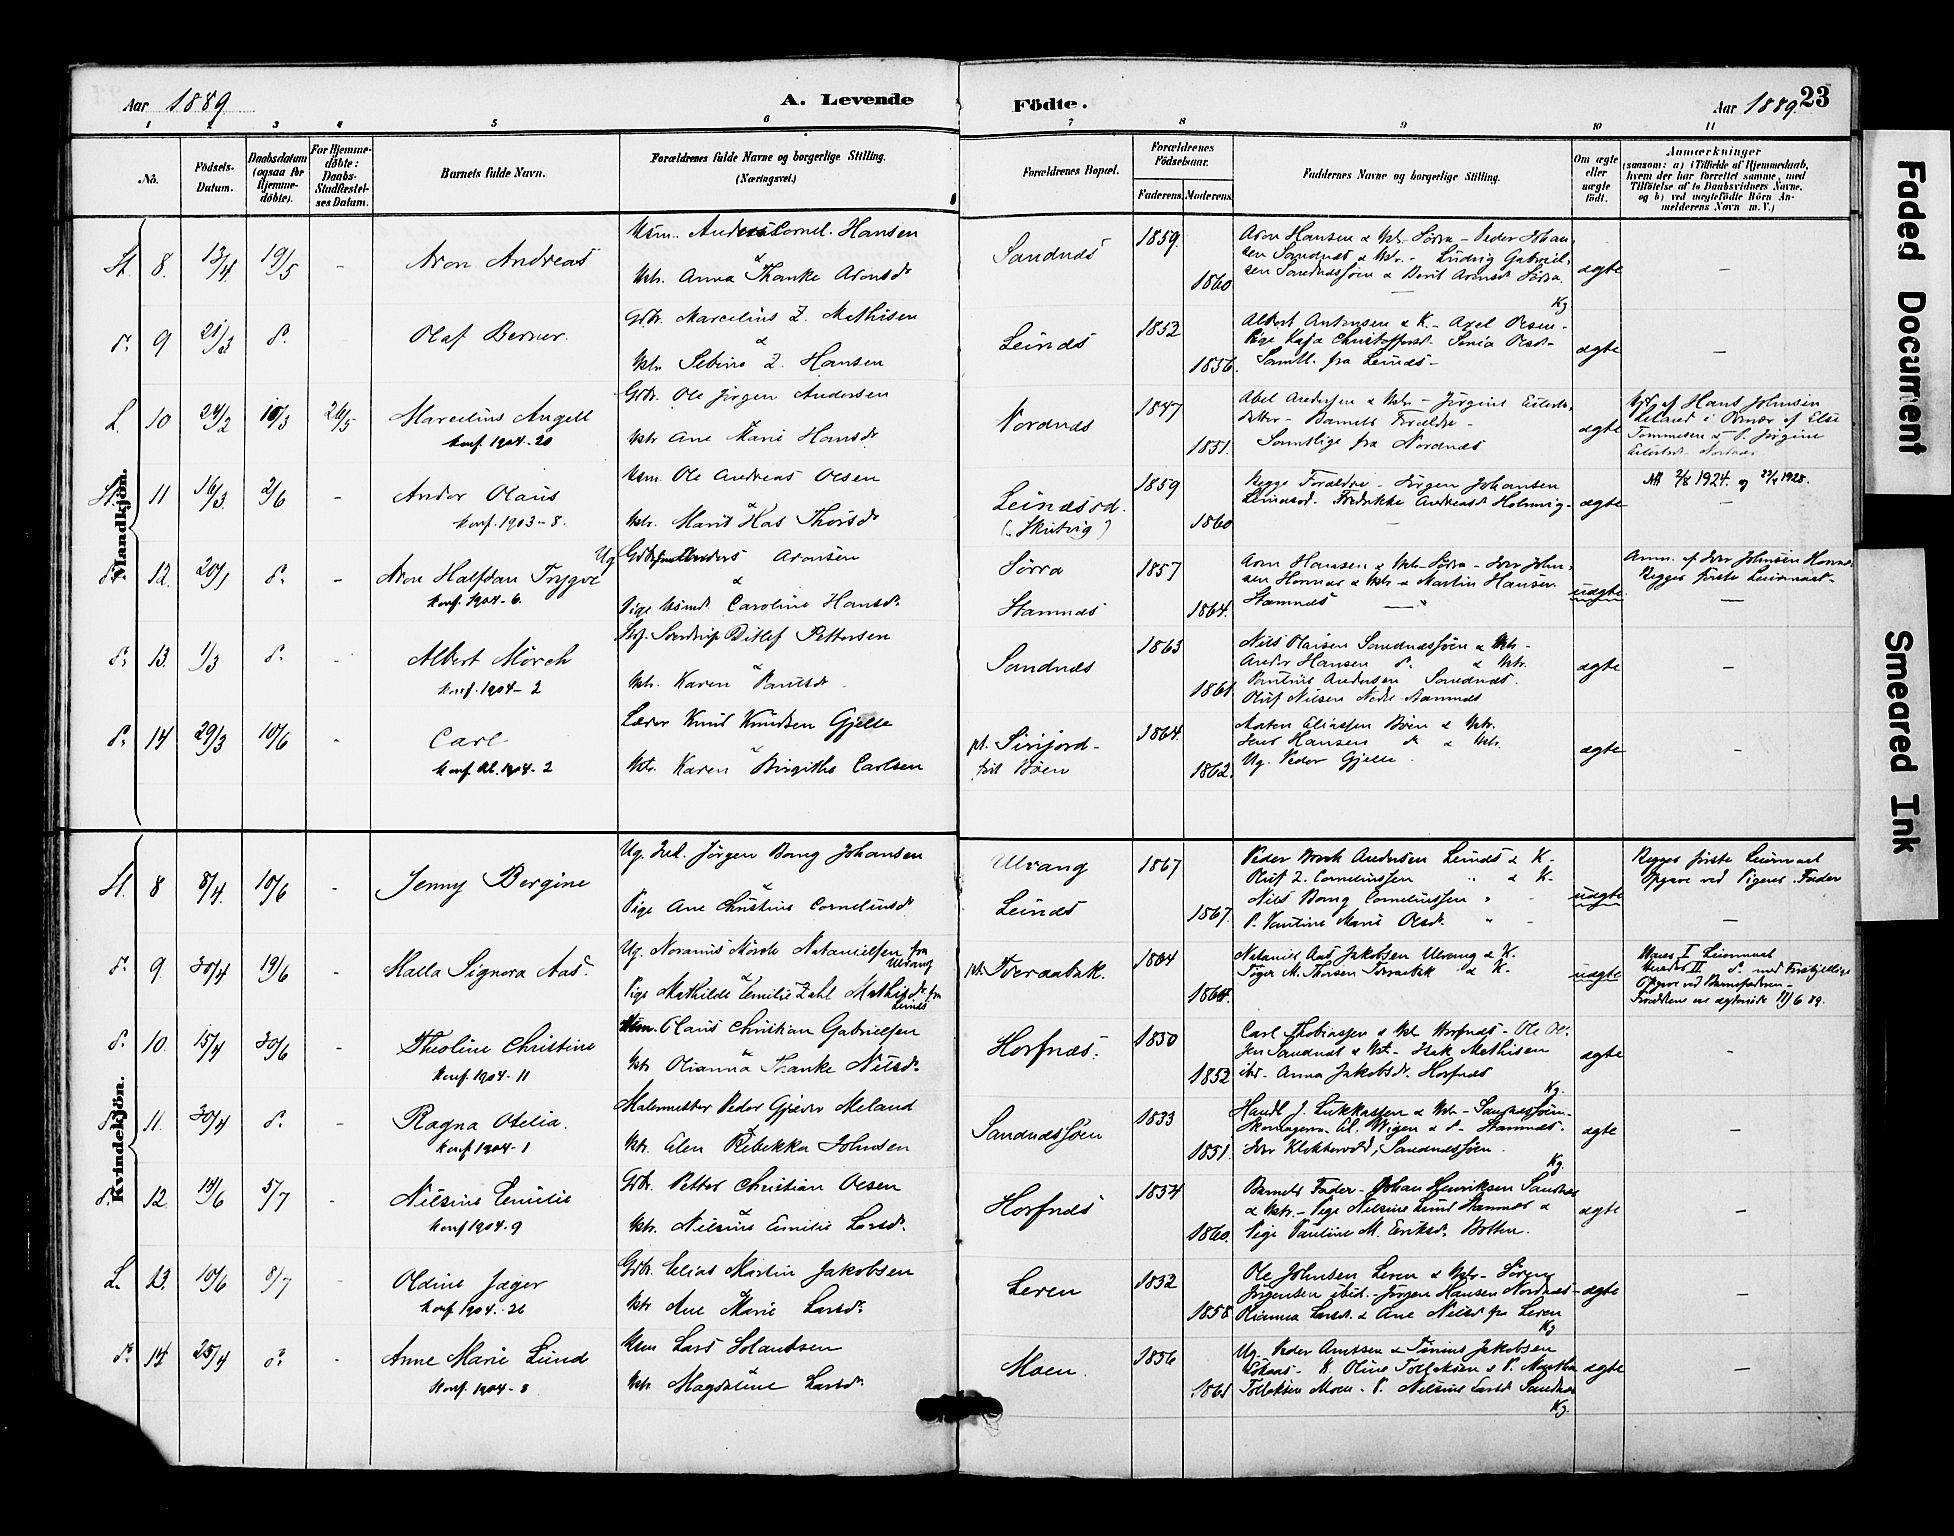 Aar 1889
A. Levende
Födte.
Aar 1889. 23
1 2 3 4 5 6 7 8 9 10 11
No.
Födsels-
Datum.
Daabsdatum
(ogsaa for
Hjemme-
döbte).
For Hjemme-
döbte:
Daabs-
Stadfæstel-
ses Datum.
Barnets fulde Navn.
Forældrenes fulde Navne og borgerlige Stilling.
(Næringsvei.)
Forældrenes Bopæl.
Forældrenes
Födselsaar.
Faderens. Moderens.
Faddernes Navne og borgerlige Stilling.
Om ægte
eller
uægte
födt.
Anmærkninger
(saasom: a) i Tilfælde af Hjemmedaab,
hvem der har forrettet samme, med
Tilföielse af to Daabsvidners Navne,
og b) ved uægtefödte Börn An-
melderens Navn m. V.)
Mandkjön.
St. 8. 13/4 19/5 - Aron Andreas
Husm. Anders Cornel. Hansen
&
Hstr. Anna Thanke Aronsdr
Sandnæs 1859. 1860
Aron Hansen & Hstr Sörra - Peder Johan-
sen Sandnæs & Hstr. - Ludvig Gabriel-
sen Sandnæssjöen & Berit Aronsd. Sörra.
ægte -
Kg
9 21/3 Olaf Berner.
Gdbr. Marcelius Z. Mathisen
&
Hstr Sebine Z. Hansen
Leinæs 1852 1856.
Albert Antonsen & K. - Axel Olsen -
Pige Kaja Christoffersd. Senia Olsd. -
Samtl. fra Leinæs -
ægte -
L. 10 24/2 10/3 26/5 Marcelius Angell
Konf. 1904-20
Gdbr. Ole Jörgen Andersen
Hstr Ane Marie Hansdr
Nordnæs 1847 1851.
Abel Andersen & Hstr - Jörgine
datter - Barnets Forældre -
Samtlige fra Nordnæs
ægte
Hjd. af Hans Johnsen
Leland i Nærvær af Else
Tommesen & P. Jörgine
St. 11 16/3 2/6 - Andor Olaus
Konf. 1903-8.
Husm. Ole Andreas Olsen
&
Hstr. Marit Has Thorsdr
Leinæsod.
(Skutvig)
1859 1860
Begge Forældre - Jörgen Johansen
Leinæsod. Fredrikke Andreasdr Holmvig -
ægte
Att 2/8 1924. og 1928.
-
12. 20/1 - Aron Halfdan Trygve
Konf. 1904-6.
Ug Gdbr Anders Aronsen
&
Pige Caroline Hansdr.
Sörra
Stamnæs
1857 1864.
Aron Hansen & Hstr Sörra - Iver John-
sen Hornæs & Hstr & Martin Hansen
Stamnæs
uægte
Anm. af Iver Johnsen Hornæs
Begges förste Leiermaal -
-
13. 1/3 - Albert Mörch
Konf. 1904-2
Ditlef Pettersen
&
Hstr. Karen Paulsdr.
Sandnæs 1863 1861
Nils Olaisen Sandnæssjöen & Hstr -
Andr Hansen & Hstr.
Paulus Andersen Sandnæs.
Oluf Nilsen Nedre Stamnæs
ægte -
14 29/3 10/6 - Carl
Konf. Al. 1904-2
Lærer Knud Knudsen Gjelle
&
Hstr. Karen Birgithe Carlsen
pt. Sirijord -
Böen
1864. 1862.
Maten Eliassen Böen & Hstr.
Jens Hansen & Hstr.
Ug. Peder Gjelle.
ægte -
Kvindekjön.
St. 8 8/4 10/6 - Jenny Bergine
Ug. Ind. Jörgen Bang Johansen
&
Pige Ane Christine Corneliusdr
Ulvang
Leinæs
1867 1867.
Peder Andersen Leinæs & K -
Oluf Z. Corneliussen " & K -
Nils Bang Corneliussen " -
P. Pauline Marie Olsd. " -
uægte
Begges förste Leiermaal
Opgave ved Pigens Fader
-
9. 30/4 19/6 - Kalla Signora Aas.
Ug. Noranius Mörch Natanielsen fra
Ulvang
&
Pige Mathilde Emilie Zahl Mathisdr fra
Leinæs
pt. Tveraabæk. 1864 1864.
Nataniel Aas Jakobsen Ulvang & K.
& K -
uægte
Hans I Leiermaal
Hendes II med Forskjellige
Opgave ved Barnefaderen -
Forældrene ere ægteviede 11/6 89.
10. 15/4 30/6 - Theoline Christine
Konf. 1904-11
Husm. Claus Christian Gabrielsen
&
Hstr Olianna Thanke Nilsdr
Horfnæs. 1850 1852
Carl Thobiassen & Hst Horfnæs - Ole Ol-
sen Sandnæs & Hstr - Isak Mathisen
ibd - Anna Jakobsdr. Horfnæs
ægte -
Kg.
11. 30/4 - Ragna Otelia.
Konf. 1904-1
Malermester Peder Gjæver Meland
&
Hstr. Elen Rebekka Johnsen
Sandnæssjöen 1833 1851.
Handl J. Lukkassen & Hstr - Sandnæssjöen -
Skomagerm. Al. Wigen & S - Stamnæs -
Iver Klokkervold, Sandnæssjöen.
ægte -
Kg.
12. 14/6 5/7 - Nilsine Emilie
Konf 1904.9
Gdbr. Petter Christian Olsen
&
Hstr. Nilsine Emilie Larsdr.
Horfnæs 1854 1860.
Barnets Fader - Johan Henriksen Sandnæs
& Hstr. - Pige Nilsine Lund Stamnæs &
Pige Pauline M. Eriksdr. Botten.
ægte -
L. 13. 10/6 8/7 - Oldine Jæger
Konf. 1904.-26
Gdbr. Elias Martin Jakobsen
&
Hstr Ane Marie Larsdr.
Leren 1832 1858
Ole Johnsen Leren & Hstr - Sören
Jörgensen ibid. - Jörgen Hansen Nordnæs -
Olianna Larsd. & Ane Nilsd fra Leren
ægte -
Kg
14. 25/4 - Anne Marie Lund
Konf. 1904-8
Husm Lars Johansen
&
Hstr Magdaline Larsdr.
Moen. 1856 1861
Ug. Peder Arntsen & Tönius Jakobsen
- K Oline Tollefsen & P. Martha
Tollefsen Moen - P. Nilsine Larsd Sandnæs
ægte -
Kg.
Faded Document
Smeared Ink